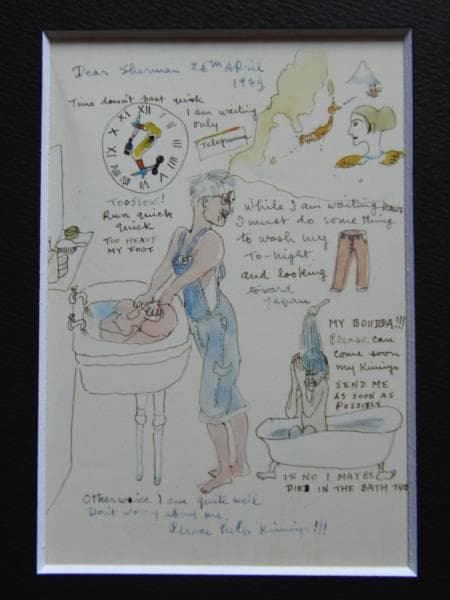 Dear Sherman 26th April
1949
Time doesn't past quick
I am waiting
only
Telegramm
XII I II III IIII V VI VII VIII IX X XI
TOO SLOW!
Run quick
quick
TOO HEAVY
MY FOOT
While I am waiting
I must do some thing
to wash my
To-night
and looking
toward
Japan
MY BOUDDA!!!
Please can
come soon
my Kimiya
SEND ME
AS SOON AS
POSSIBLE
IF NO I MAYBE
DIED IN THE BATH TUB
Otherwise I am quite well
Don't worry about me.
Please help Kimiya!!!